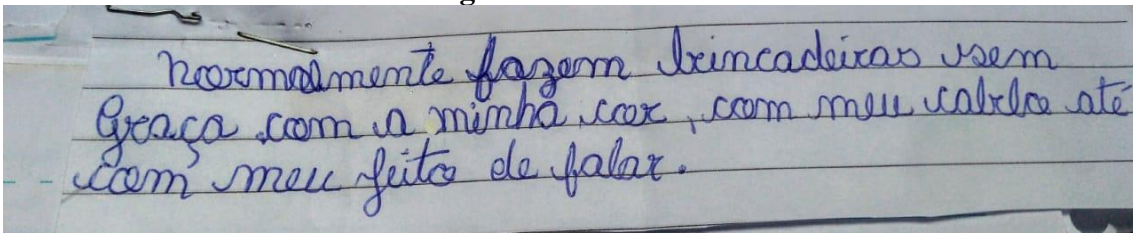 Normalmente fazem brincadeiras sem
Graça com a minha cor, com meu cabelo até
com meu jeito de falar.